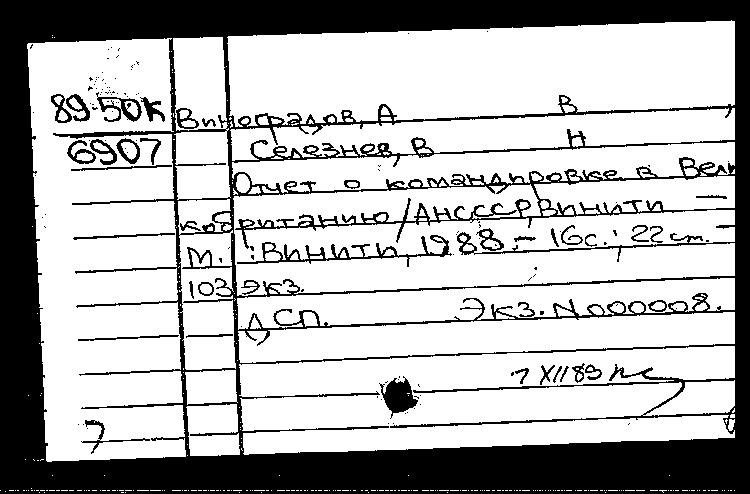 89-50К Виноградов, А В
6907 Селезнев, В Н
Отчет о командировке в Вели
кобританию / АН СССР, ВИНИТИ –
М. : ВИНИТИ, 1988. – 16 с. ; 22 см. –
103 экз.
ДСП. Экз. N 000008.
7 XII 89
7